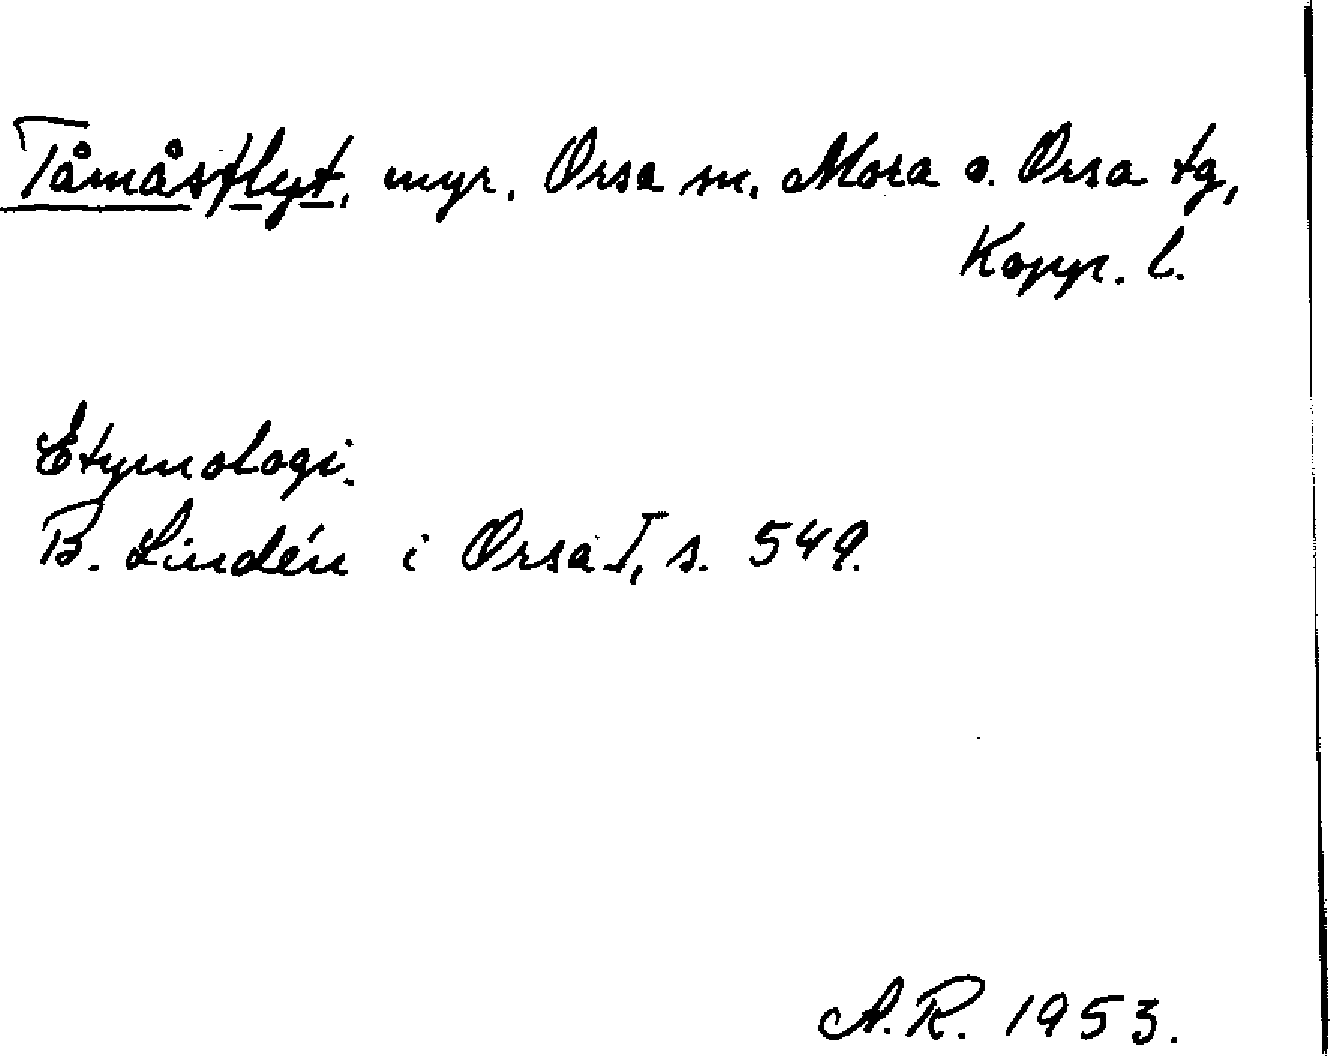 Tåmåsflyt, myr. Orsa sn. Mora o. Orsa tg,
Kopp. l.
Etymologi.
B. Lindén i Orsa I, s. 549.
A.R. 1953.